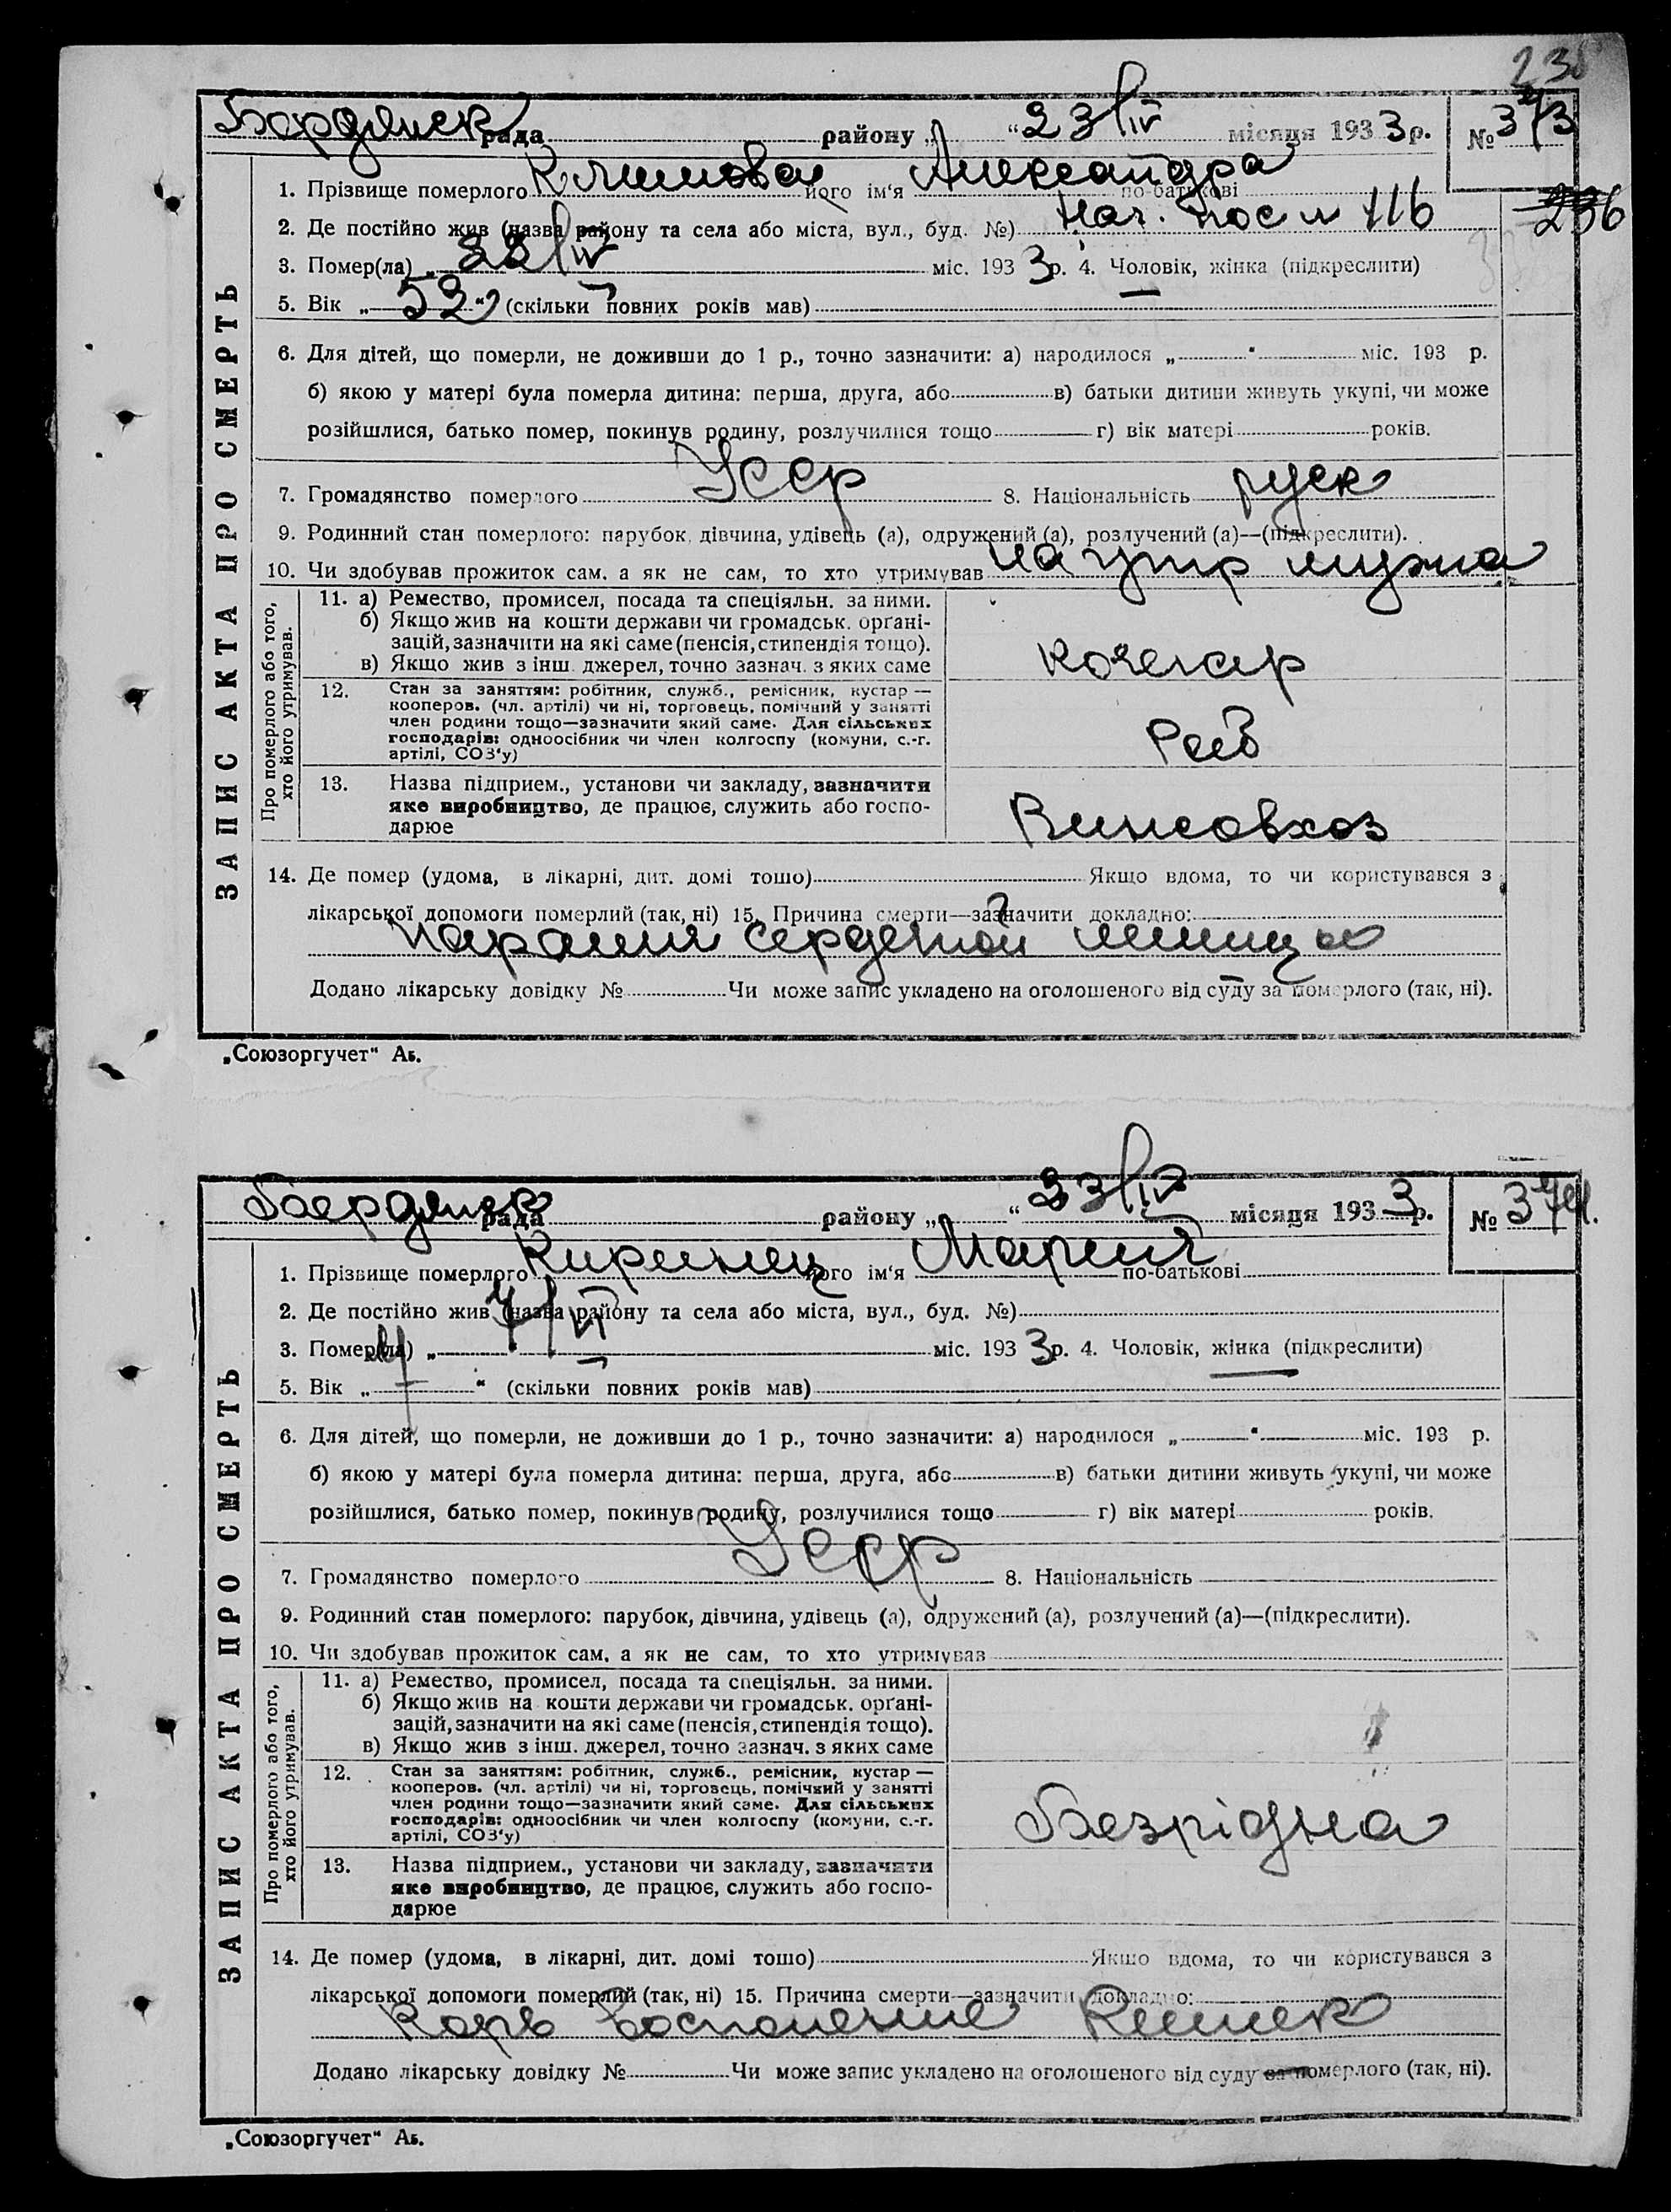 238
Бердянск рада району „ “ 23/IV місяця 1933 р. № 373
1. Прізвище померлого Климова його ім'я Александра по-батькові
2. Де постійно жив (назва району та села або міста, вул., буд. №) Наг. пос № 116
236
3. Помер(ла) „ 22/IV міс. 1933 р. 4. Чоловік, жінка (підкреслити)
5. Вік „ 52 “ (скільки повних років мав)
6. Для дітей, що померли, не доживши до 1 р., точно зазначити: а) народилося „ “ міс. 193 р.
б) якою у матері була померла дитина: перша, друга, або в) батьки дитини живуть укупі, чи може
розійшлися, батько помер, покинув родину, розлучилися тощо г) вік матері років.
7. Громадянство померлого Усср 8. Національність руск
9. Родинний стан померлого: парубок, дівчина, удівець (а), одружений (а), розлучений (а)—(підкреслити).
10. Чи здобував прожиток сам, а як не сам, то хто утримував на утр мужа
ЗАПИС АКТА ПРО СМЕРТЬ
Про померлого або того,
хто його утримував.
11. а) Ремество, промисел, посада та спеціяльн. за ними.
б) Якщо жив на кошти держави чи громадськ. орґані-
зацій, зазначити на які саме (пенсія, стипендія тощо).
в) Якщо жив з інш. джерел, точно зазнач. з яких саме
кочегар
12. Стан за заняттям: робітник, служб., ремісник, кустар —
кооперов. (чл. артілі) чи ні, торговець, помічний у занятті
член родини тощо—зазначити який саме. Для сільських
господарів: одноосібник чи член колгоспу (комуни, с.-г.
артілі, СОЗ'у)
Раб
13. Назва підприєм., установи чи закладу, зазначити
яке виробництво, де працює, служить або госпо-
дарює
Винсовхоз
14. Де помер (удома, в лікарні, дит. домі тощо) Якщо вдома, то чи користувався з
лікарської допомоги померлий (так, ні) 15. Причина смерти—зазначити докладно:
паралич сердечной мышцы
Додано лікарську довідку № Чи може запис укладено на оголошеного від суду за померлого (так, ні).
„Союзоргучет“ Аб.
Бердянск рада району „ “ 23/IV місяця 1933 р. № 374.
1. Прізвище померлого Киринец його ім'я Мария по-батькові
2. Де постійно жив (назва району та села або міста, вул., буд. №)
3. Помер(ла) „ 7/VI міс. 1933 р. 4. Чоловік, жінка (підкреслити)
5. Вік „ 4 “ (скільки повних років мав)
6. Для дітей, що померли, не доживши до 1 р., точно зазначити: а) народилося „ “ міс. 193 р.
б) якою у матері була померла дитина: перша, друга, або в) батьки дитини живуть укупі, чи може
розійшлися, батько помер, покинув родину, розлучилися тощо г) вік матері років.
7. Громадянство померлого Усср 8. Національність
9. Родинний стан померлого: парубок, дівчина, удівець (а), одружений (а), розлучений (а)—(підкреслити).
10. Чи здобував прожиток сам, а як не сам, то хто утримував
ЗАПИС АКТА ПРО СМЕРТЬ
Про померлого або того,
хто його утримував.
11. а) Ремество, промисел, посада та спеціяльн. за ними.
б) Якщо жив на кошти держави чи громадськ. орґані-
зацій, зазначити на які саме (пенсія, стипендія тощо).
в) Якщо жив з інш. джерел, точно зазнач. з яких саме
12. Стан за заняттям: робітник, служб., ремісник, кустар —
кооперов. (чл. артілі) чи ні, торговець, помічний у занятті
член родини тощо—зазначити який саме. Для сільських
господарів: одноосібник чи член колгоспу (комуни, с.-г.
артілі, СОЗ'у)
Безрідна
13. Назва підприєм., установи чи закладу, зазначити
яке виробництво, де працює, служить або госпо-
дарює
14. Де помер (удома, в лікарні, дит. домі тощо) Якщо вдома, то чи користувався з
лікарської допомоги померлий (так, ні) 15. Причина смерти—зазначити докладно:
Корь Воспаление Кишек
Додано лікарську довідку № Чи може запис укладено на оголошеного від суду за померлого (так, ні).
„Союзоргучет“ Аб.